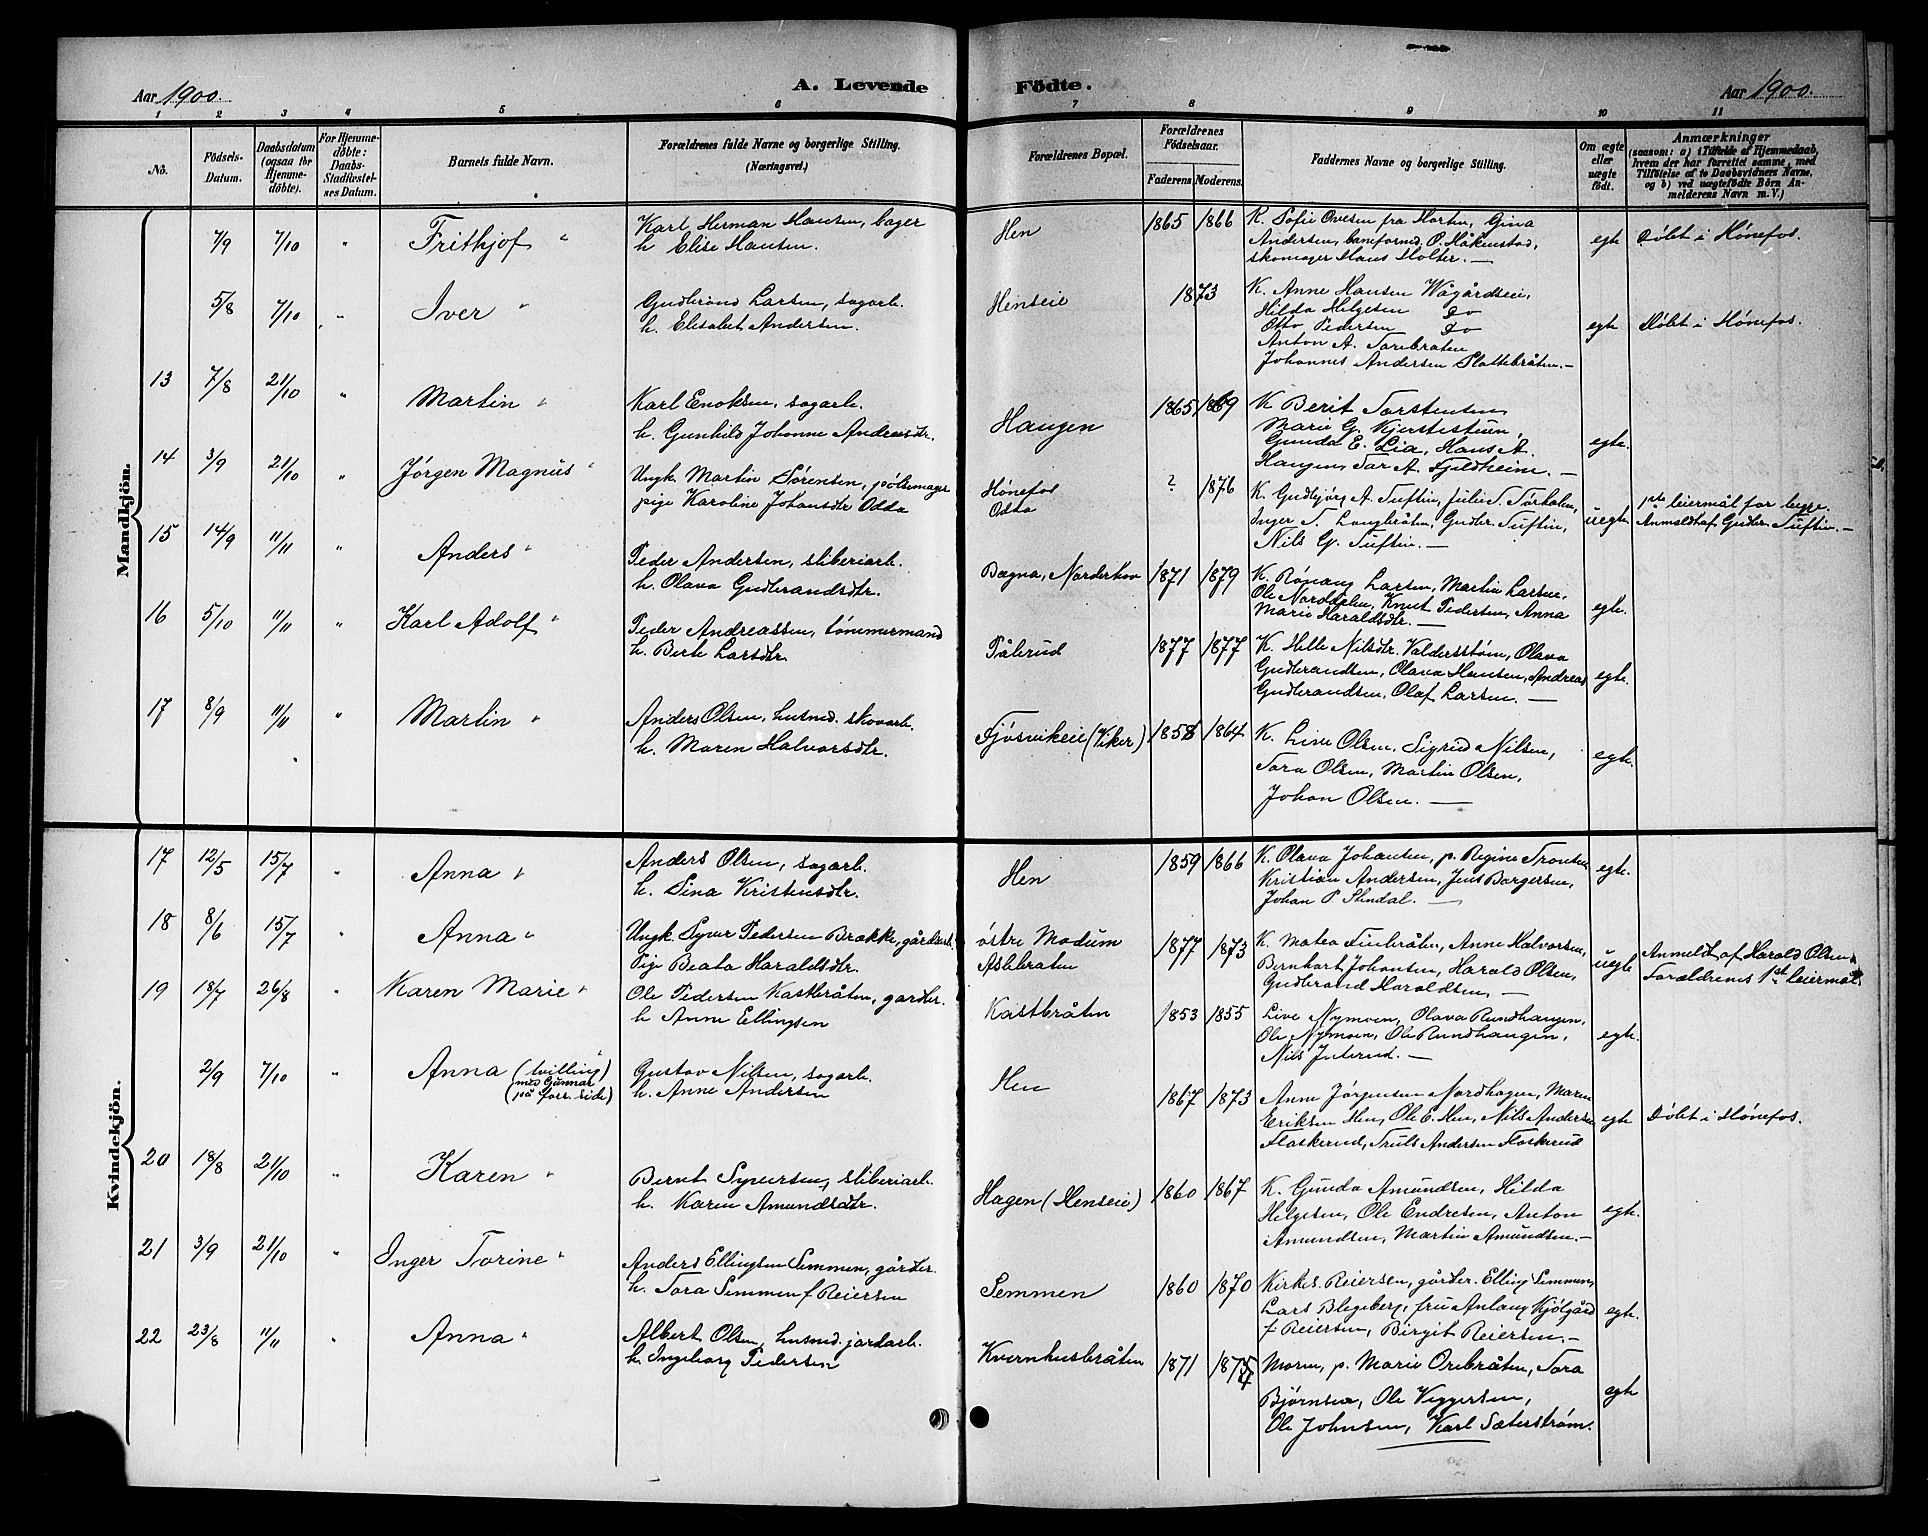 Aar 1900. A. Levende Födte. Aar 1900.
1 2 3 4 5 6 7 8 9 10 11
No. Födsels-Datum. Daabsdatum (ogsaa for Hjemmedöbte). For Hjemmedöbte: Daabs-Stadfæstelses Datum. Barnets fulde Navn. Forældrenes fulde Navne og borgerlige Stilling. (Næringsvei.) Forældrenes Bopæl. Forældrenes Födselsaar. Faderens Moderens. Faddernes Navne og borgerlige Stilling. Om ægte eller uægte födt. Anmærkninger (saasom: a) i Tilfælde af Hjemmedaab, hvem der har forrettet samme, med Tilföielse af to Daabsvidners Navne, og b) ved uægtefödte Börn Anmelderens Navn m. V.)
Mandkjön.
7/9 7/10 " Frithjof " Karl Herman Hansen, bager
h. Elise Hansen.
Hen 1865 1866 K. Sofie Ovesen fra Horten, Gina
Andersen, baneformd. P. Håkenstad,
skomager Hans Holter. —
egte Døbt i Hønefos.
5/8 7/10 " Iver " Gudbrand Larsen, sagarb.
h. Elisabet Andersen.
Henseie 1873 K. Anne Hansen Vågårdseie,
Hilda Helgesen Do
Otto Pedersen Do
Anton A. Torebråten
Johannes Andersen Plattebråten. —
egte Døbt i Hønefos.
13 7/8 21/10 " Martin " Karl Enoksen, sagarb.
h. Gunhild Johanne Andreasdtr.
Haugen 1865 1869 K. Berit Torstensen,
Marie G. Kjerstistuen,
Gunda E. Lia, Hans A.
Haugen, Tor A. Fjeldheim. —
egte.
14 3/9 21/10 " Jørgen Magnus " Ungk. Martin Sørensen, pølsemager
pige Karoline Johansdtr Odda
Hønefos
Odda
? 1876 K. Gudbjørg A. Tuftin, Julie T. Tørholm,
Inger T. Langbråten, Gudbr. Tuftin,
Nils G. Tuftin. —
uegte. 1ste leiermål for begge.
Anmeldt af Gudbr. Tuftin. —
15 14/9 11/11 " Anders " Peder Andersen, sliberiarb.
h. Olava Gudbrandsdtr.
Bægna, Norderhov 1871 1879 K. Rønaug Larsen, Martin Larsen,
Ole Norddelen, Knut Pedersen, Anna
Marie Haraldsdtr. —
egte.
16 5/10 11/11 " Karl Adolf " Peder Andreassen, tømmermand
h. Berte Larsdtr.
Pålerud 1877 1877 K. Helle Nilsdtr. Valdersstøen, Olava
Gudbrandsen, Olava Hansen, Andreas
Gudbrandsen, Olaf Larsen. —
egte.
17 8/9 11/11 " Martin " Anders Olsen, husmd. skovarb.
h. Maren Halvorsdtr.
Fjøsvikeie (Viker) 1858 1864 K. Live Olsen, Sigrid Nilsen,
Tora Olsen, Martin Olsen,
Johan Olsen. —
egte.
Kvindekjön.
17 12/5 15/7 " Anna " Anders Olsen, sagarb.
h. Sina Kristensdtr.
Hen 1859 1866 K. Olava Johansen, p. Regine Trontsen
Kristian Andersen, Jens Borgersen,
Johan P. Stendal. —
egte.
18 8/6 15/7 " Anna " Ungk. Syver Pedersen Brække, gårdarb.
Pige Beata Haraldsdtr.
østre Modum
Aslebråten
1877 1873 K. Matea Finbråten, Anne Halvorsen,
Bernhart Johansen, Harald Olsen,
Gudbrand Haraldsen. —
uegte Anmeldt af Harald Olsen.
Forældrenes 1ste leiermål.
19 18/7 26/8 " Karen Marie " Ole Pedersen Kastbråten, gårdbr.
h. Anne Ellingsen
Kastbråten 1853 1855 Live Nymoen, Olava Rundhaugen,
Ole Nymoen, Ole Rundhaugen,
Nils Juterud. —
egte.
2/9 7/10 " Anna (tvilling
med Gunnar
på forr. side) Gustav Nilsen, sagarb.
h. Anne Andersen
Hen 1867 1873 Anne Jørgensen Nordhagen, Maren
Eriksen Hen, Ole E. Hen, Nils Andersen
Flaskerud, Truls Andersen Flaskerud
egte Døbt i Hønefos.
20 18/8 21/10 " Karen " Bernt Syversen, sliberiarb.
h. Karen Amundsdtr.
Hagen (Henseie) 1860 1867 K. Gunda Amundsen, Hilda
Helgesen, Ole Endresen, Anton
Amundsen, Martin Amundsen. —
egte.
21 3/9 21/10 " Inger Torine " Anders Ellingsen Semmen, gårdbr.
h. Tora Semmen f Reiersen
Semmen 1860 1870 Kirkes. Reiersen, gårdbr. Elling Semmen,
Lars Blegeberg, fru Anlaug Kjølgård
f Reiersen, Birgit Reiersen. —
egte.
22 23/8 11/11 " Anna " Albert Olsen, husmd. jordarb.
h. Ingeborg Pedersen
Kvernhusbråten 1871 1874 Moren, p. Marie Orebråten, Tora
Bjørnsen, Ole Viggersen,
Ole Johnsen, Karl Sæterstrøm.
egte